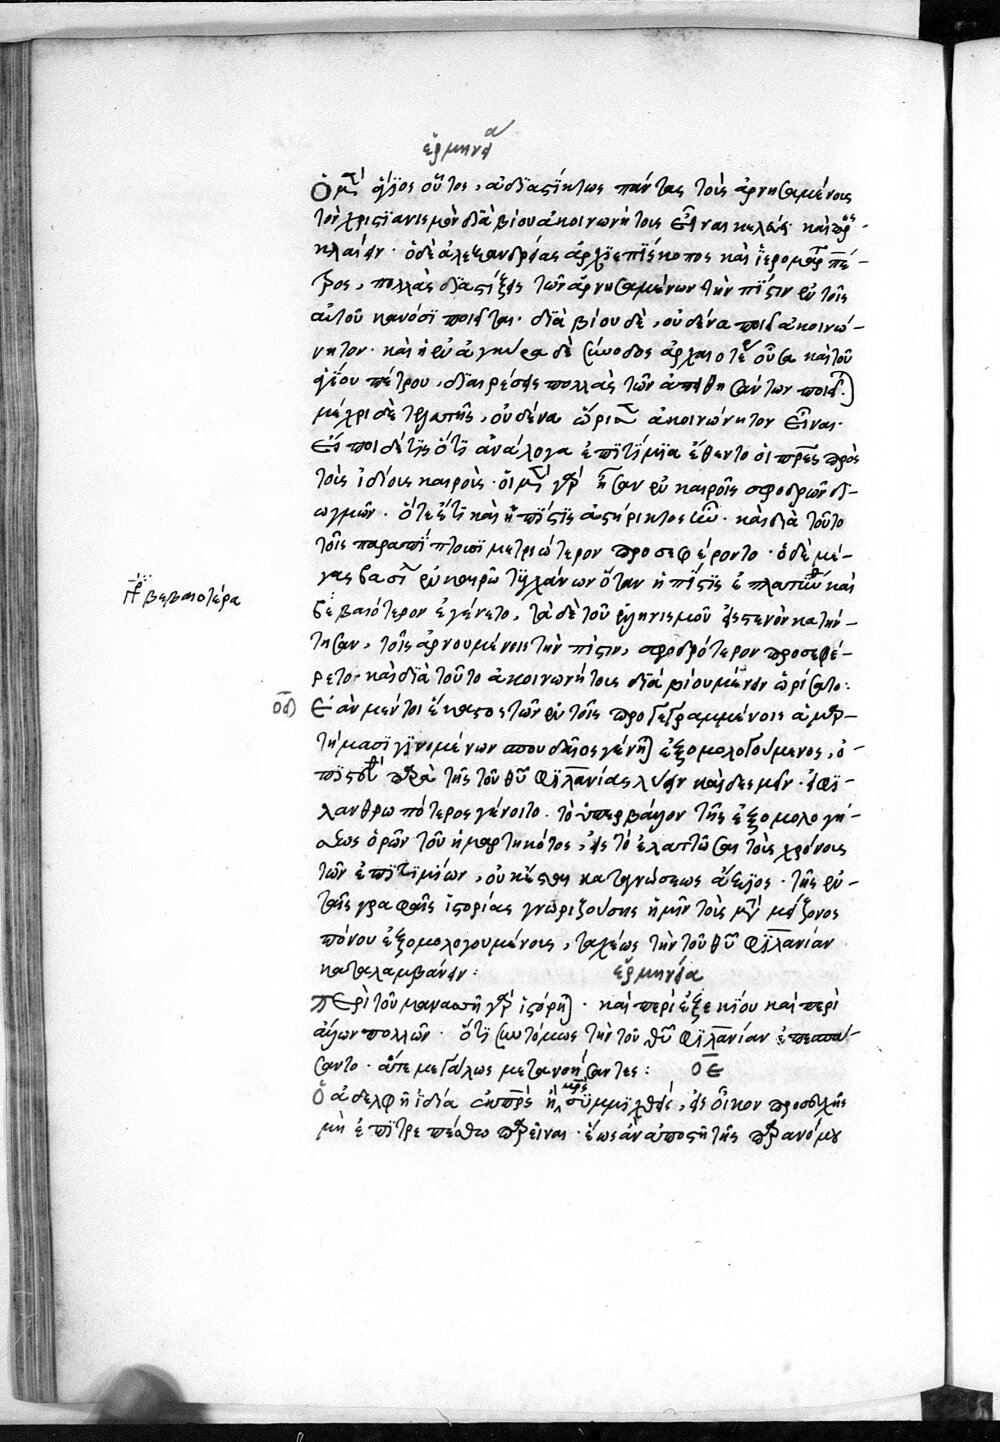 ἑρμηνεία
Ὁ μὲν ἅγιος οὗτος, ἀδιαστίκτως πάντας τοὺς ἀρνησαμένους
τὸν χριστιανισμὸν διὰ βίου ἀκοινωνήτους εἶναι κελεύει· καὶ προσ-
κλαίειν· ὁ δὲ ἀλεξανδρείας ἀρχιεπίσκοπος καὶ ἱερομάρτυς πέ-
τρος, πολλὰς διαστίξεις τῶν ἀρνησαμένων τὴν πίστιν ἐν τοῖς
αὐτοῦ κανόσι ποιεῖται· διὰ βίου δὲ, οὐδένα ποιεῖ ἀκοινώ-
νητον· καὶ ἡ ἐν ἀγκύρα δὲ σύνοδος ἀρχαιοτέρα οὖσα καὶ τοῦ
ἁγίου πέτρου, διαιρέσεις πολλὰς τῶν ἀπειθησάντων ποιεῖται
μέχρι δὲ τελευτῆς, οὐδένα ὥρισεν ἀκοινώνητον εἶναι·
εἴποι δέ τις ὅτι ἀνάλογα ἐπιτίμια ἔθεντο οἱ πρες πρὸς
τοὺς ἰδίους καιροὺς· οἱ μὲν γὰρ ἦσαν ἐν καιροῖς σφοδρῶν δι-
ωγμῶν· ὅτε ἔτι καὶ ἡ πίστις ἀστήρικτος ἦν· καὶ διὰ τοῦτο
τοῖς παραπίπτουσι μετριώτερον προσεφέροντο· ὁ δὲ μέ-
γας βασίλειος ἐν καιρῶ τυγχάνων ὅταν ἡ πίστις ἐπλατύνθη καὶ
βεβαιότερον ἐγένετο, τὰ δὲ τοῦ ἑλληνισμοῦ εἰς στενὸν κατήν-
τησαν, τοῖς ἀρνουμένοις τὴν πίστιν, σφοδρότερον προσεφέ-
ρετο· καὶ διὰ τοῦτο ἀκοινωνήτους διὰ βίου μένειν ὡρίσατο:
βεβαιοτέρα
οδ Ἐὰν μέντοι ἕκαστος τῶν ἐν τοῖς προγεγραμμένοις ἁμαρ-
τήμασι γινομένων σπουδαῖος γένηται ἐξομολογούμενος, ὁ
πιστευθεὶς παρὰ τῆς τοῦ θυ φιλανίας λύειν καὶ δεσμεῖν· εἰ φι-
λανθρωπότερος γένοιτο· τὸ ὑπερβάλλον τῆς ἐξομολογή-
σεως ὁρῶν τοῦ ἡμαρτηκότος, εἰς τὸ ἐλαττῶσαι τοὺς χρόνους
τῶν ἐπιτιμίων, οὐκ ἔσται καταγνώσεως ἄξιος· τῆς ἐν
ταῖς γραφαῖς ἱστορίας γνωριζούσης ἡμῖν τοὺς μετὰ μείζονος
πόνου ἐξομολογουμένους, ταχέως τὴν τοῦ θυ φιλανίαν
καταλαμβάνειν· ἑρμηνεία
Περὶ τοῦ μανασσῆ γὰρ ἱστόρηται· καὶ περὶ ἐξεκίου καὶ περὶ
ἄλλων πολλῶν· ὅτι συντόμως τὴν τοῦ θυ φιλανίαν ἐπεσπά-
σαντο· ἅτε μεγάλως μετανοήσαντες: οε
Ὁ ἀδελφῆ ἰδία ἐκ πρς ἢ μρς συμμιχθείς, εἰς οἶκον προσευχῆς
μὴ ἐπιτρεπέσθω παρεῖναι· ἕως ἂν ἀποστῆ τῆς παρανόμου